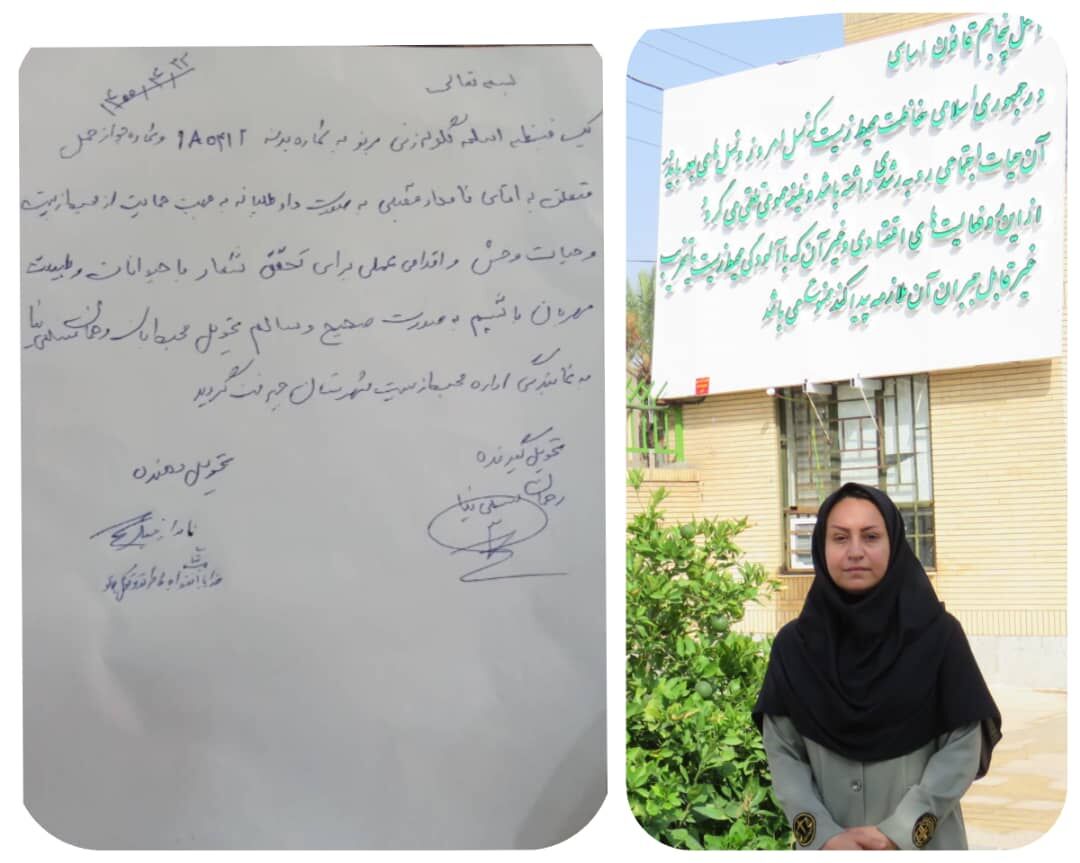 بسمه تعالی
۱۴۰۰/۴/۲۲
یک قبضه اسلحه گلوله زنی مربوط به شماره بدنه ۹۸۵۴۱۲ و شماره جواز حمل
متعلق به آقای نامدار به صورت داوطلبانه به جهت حمایت از محیط زیست
و حیات وحش و اقدامی عملی برای تحقق شعار با حیوانات و طبیعت
مهربان باشیم به صورت صحیح و سالم تحویل محیطبان رحمان
به نمایندگی اداره محیط زیست شهرستان جیرفت گردید
تحویل گیرنده
رحمان
تحویل دهنده
نامدار
اصل پنجاهم قانون اساسی
در جمهوری اسلامی حفاظت محیط زیست که نسل امروز و نسل های بعد باید در
آن حیات اجتماعی رو به رشدی داشته باشند وظیفه عمومی تلقی می گردد
از این رو فعالیت های اقتصادی و غیر آن که با آلودگی محیط زیست یا تخریب
غیر قابل جبران آن ملازمه پیدا کند ممنوع می باشد